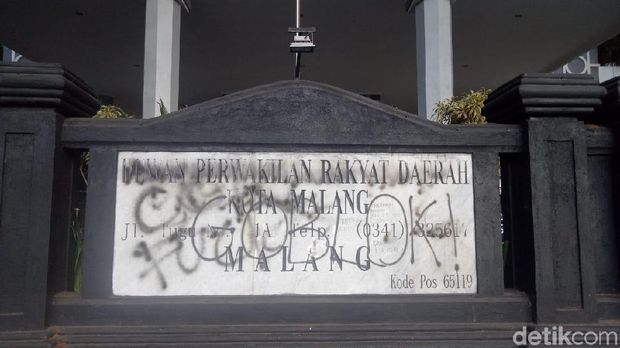 DEWAN PERWAKILAN RAKYAT DAERAH
KOTA MALANG
Jl. Tugu No. 1A Telp. (0341) 325617
MALANG
Kode Pos 65119
GOBLOK!
detikcom